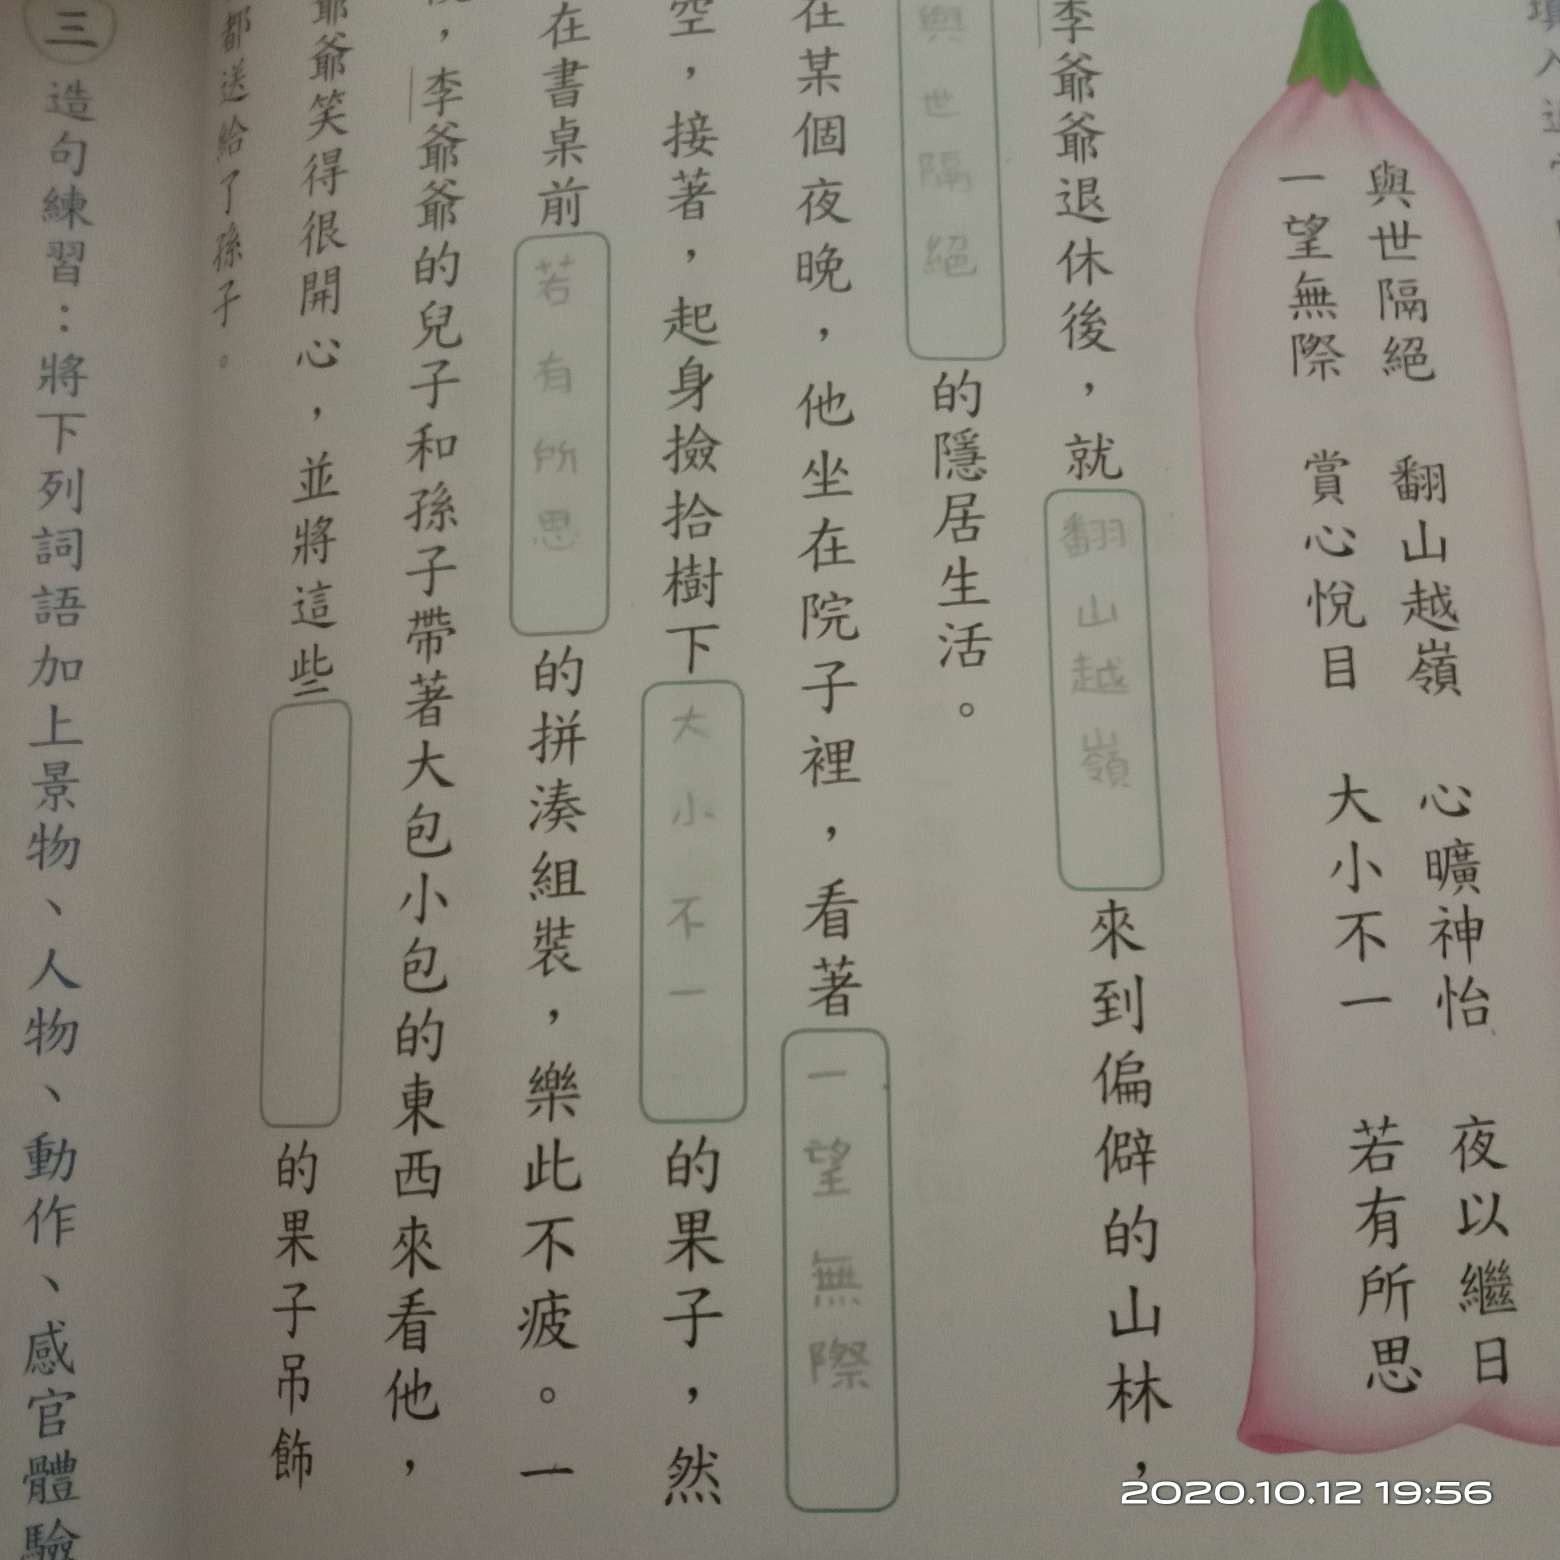 與世隔絕 翻山越嶺 心曠神怡 夜以繼日
一望無際 賞心悅目 大小不一 若有所思
李爺爺退休後，就翻山越嶺來到偏僻的山林，
與世隔絕的隱居生活。
在某個夜晚，他坐在院子裡，看著一望無際
空，接著，起身撿拾樹下大小不一的果子，然
在書桌前若有所思的拼湊組裝，樂此不疲。一
，李爺爺的兒子和孫子帶著大包小包的東西來看他，
爺爺笑得很開心，並將這些的果子吊飾
都送給了孫子。
三 造句練習：將下列詞語加上景物、人物、動作、感官體驗
2020.10.12 19:56